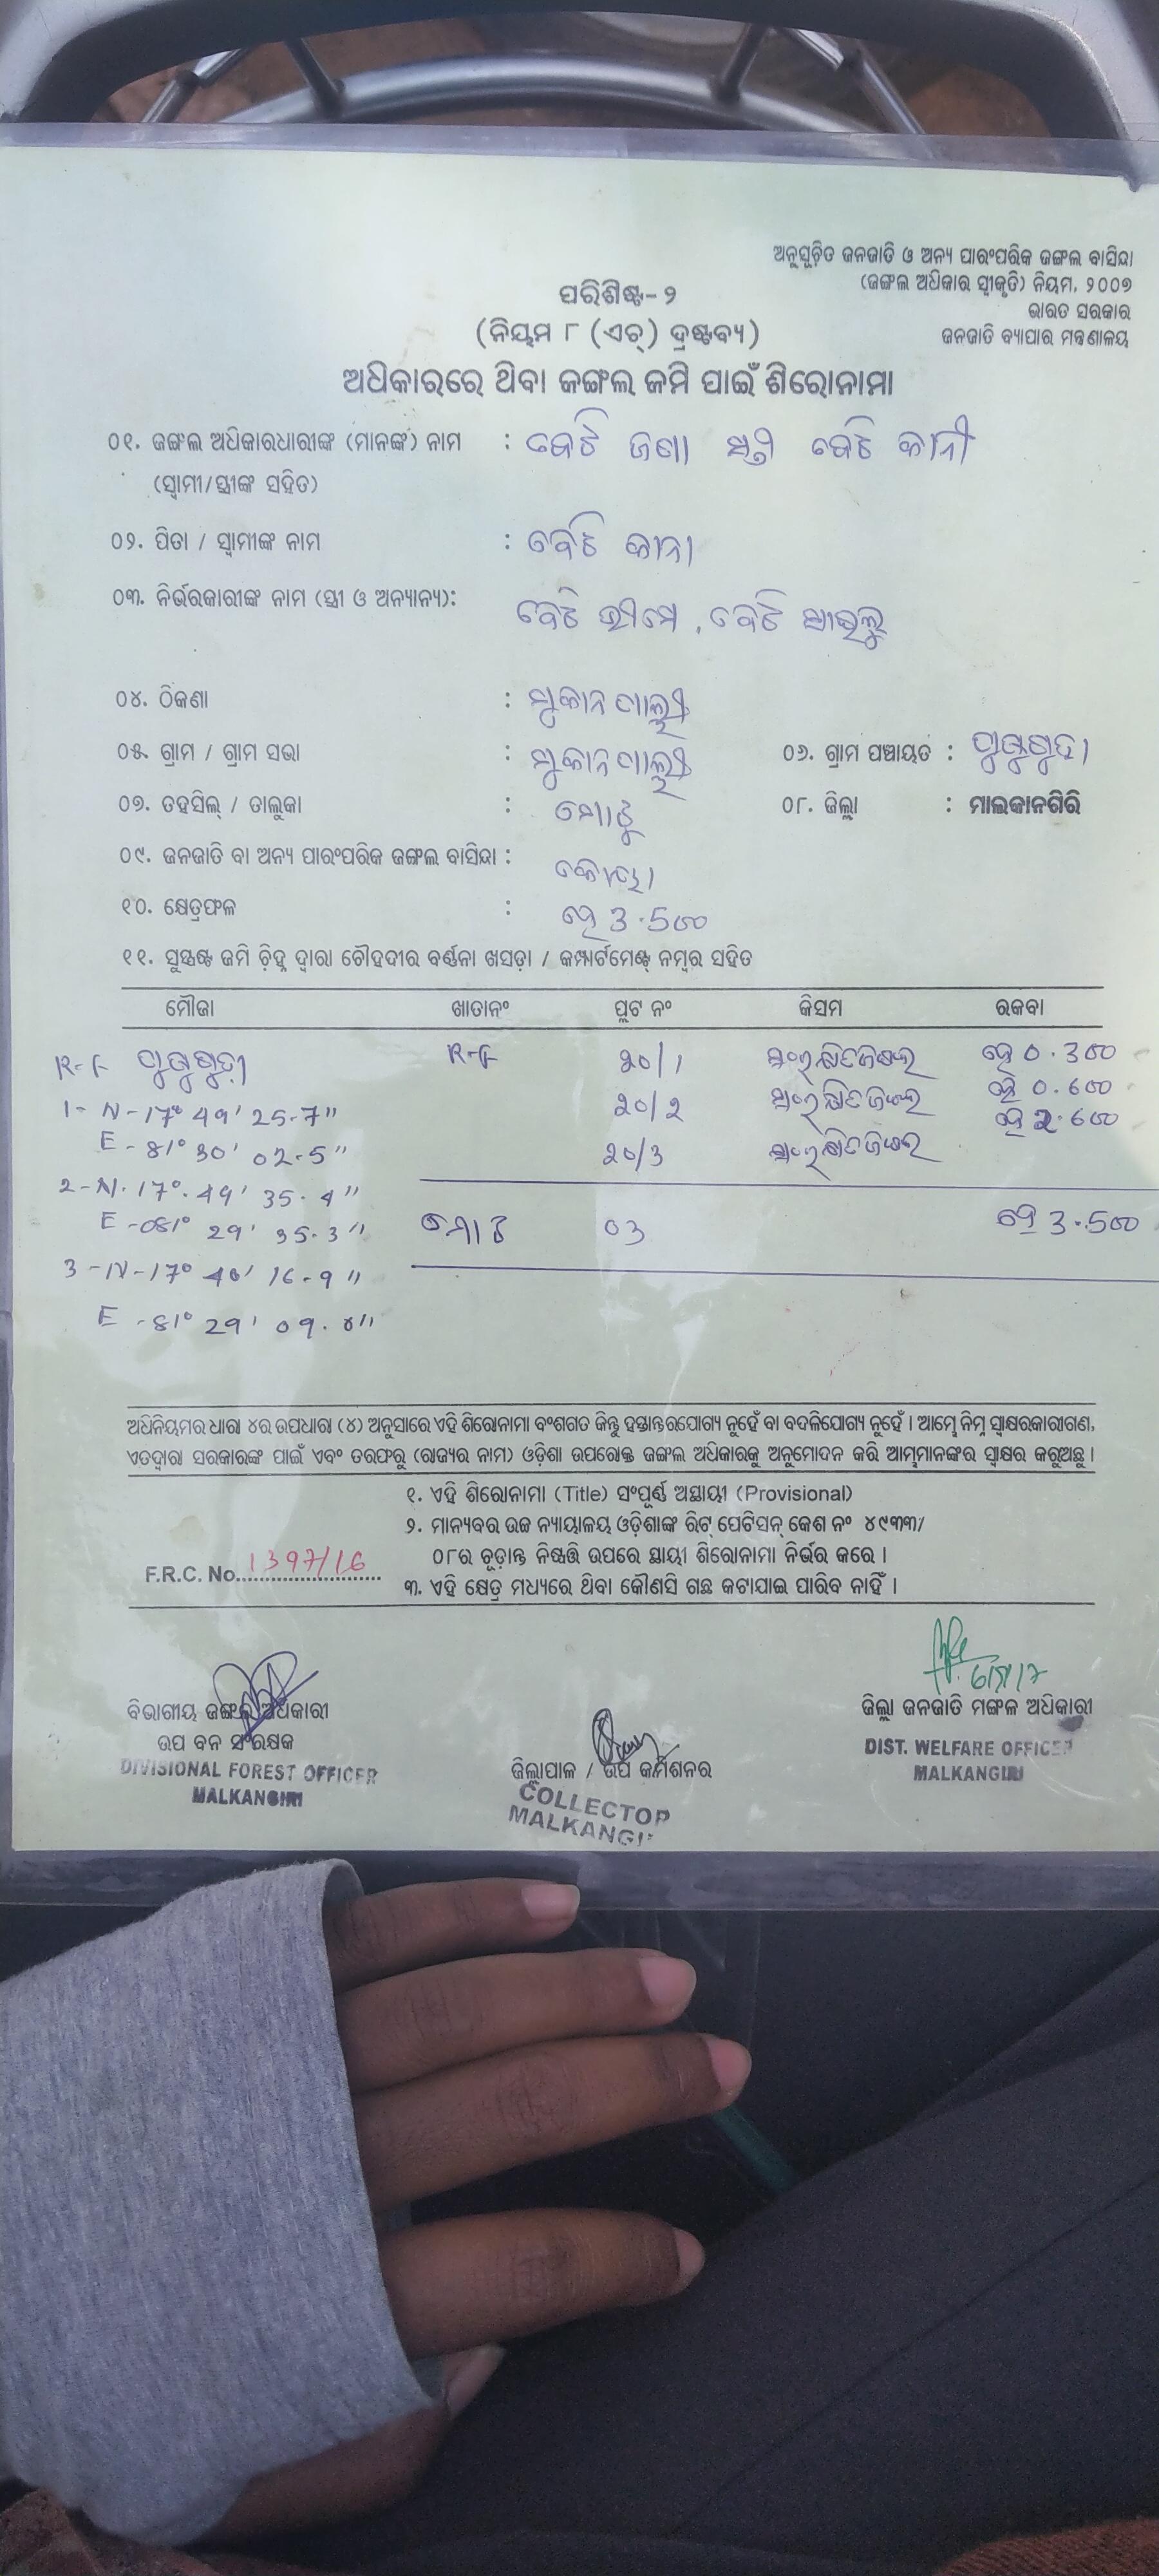 ଅନୁସୂଚିତ ଜନଜାତି ଓ ଅନ୍ୟ ପାରଂପରିକ ଜଙ୍ଗଲ ବାସିନ୍ଦା
(ଜଙ୍ଗଲ ଅଧିକାର ସ୍ୱୀକୃତି) ନିୟମ, ୨୦୦୭
ଭାରତ ସରକାର
ଜନଜାତି ବ୍ୟାପାର ମନ୍ତ୍ରଣାଳୟ
ପରିଶିଷ୍ଟ-୨
(ନିୟମ ୮ (ଏଚ୍) ଦ୍ରଷ୍ଟବ୍ୟ)
ଅଧିକାରରେ ଥିବା ଜଙ୍ଗଲ ଜମି ପାଇଁ ଶିରୋନାମା
୦୧. ଜଙ୍ଗଲ ଅଧିକାରଧାରୀଙ୍କ (ମାନଙ୍କ) ନାମ :
(ସ୍ୱାମୀ/ସ୍ତ୍ରୀଙ୍କ ସହିତ)
୦୨. ପିତା / ସ୍ୱାମୀଙ୍କ ନାମ :
୦୩. ନିର୍ଭରକାରୀଙ୍କ ନାମ (ସ୍ତ୍ରୀ ଓ ଅନ୍ୟାନ୍ୟ):
୦୪. ଠିକଣା :
୦୫. ଗ୍ରାମ / ଗ୍ରାମ ସଭା : ୦୬. ଗ୍ରାମ ପଞ୍ଚାୟତ :
୦୭. ତହସିଲ୍ / ତାଲୁକା : ମୋଟୁ ୦୮. ଜିଲ୍ଲା : ମାଲକାନଗିରି
୦୯. ଜନଜାତି ବା ଅନ୍ୟ ପାରଂପରିକ ଜଙ୍ଗଲ ବାସିନ୍ଦା : କୋୟା
୧୦. କ୍ଷେତ୍ରଫଳ : ହେ 3.500
୧୧. ସୁସ୍ପଷ୍ଟ ଜମି ଚ଼ିହ୍ନ ଦ୍ୱାରା ଚୌହଦୀର ବର୍ଣ୍ଣନା ଖସଡ଼ା / କମ୍ପାର୍ଟମେଣ୍ଟ୍ ନମ୍ବର ସହିତ
ମୌଜା ଖାତାନଂ ପ୍ଲଟ ନଂ କିସମ ରକବା
R-F R-F 20/1 ସଂରକ୍ଷିତ ଜଙ୍ଗଲ ହେ 0.300
1- N-17° 49' 25-7" 20/2 ସଂରକ୍ଷିତ ଜଙ୍ଗଲ ହେ 0.600
E - 81° 30' 02-5" 20/3 ସଂରକ୍ଷିତ ଜଙ୍ଗଲ ହେ 2.600
2-N-17°. 49' 35.4"
E -081° 29' 35.3" ମୋଟ 03 ହେ 3.500
3-N-17° 16-9"
E -81° 29'
ଅଧିନିୟମର ଧାରା ୪ର ଉପଧାରା (୪) ଅନୁସାରେ ଏହି ଶିରୋନାମା ବଂଶଗତ କିନ୍ତୁ ହସ୍ତାନ୍ତରଯୋଗ୍ୟ ନୁହେଁ ବା ବଦଳିଯୋଗ୍ୟ ନୁହେଁ । ଆମ୍ଭେ ନିମ୍ନ ସ୍ୱାକ୍ଷରକାରୀଗଣ,
ଏତଦ୍ଦ୍ୱାରା ସରକାରଙ୍କ ପାଇଁ ଏବଂ ତରଫରୁ (ରାଜ୍ୟର ନାମ) ଓଡ଼ିଶା ଉପରୋକ୍ତ ଜଙ୍ଗଲ ଅଧିକାରକୁ ଅନୁମୋଦନ କରି ଆମ୍ଭମାନଙ୍କର ସ୍ୱାକ୍ଷର କରୁଅଛୁ ।
୧. ଏହି ଶିରୋନାମା (Title) ସଂପୂର୍ଣ୍ଣ ଅସ୍ଥାୟୀ (Provisional)
୨. ମାନ୍ୟବର ଉଚ୍ଚ ନ୍ୟାୟାଳୟ ଓଡ଼ିଶାଙ୍କ ରିଟ୍ ପେଟିସନ୍ କେଶ ନଂ ୪୯୩୩/
୦୮ର ଚୂଡ଼ାନ୍ତ ନିଷ୍ପତ୍ତି ଉପରେ ସ୍ଥାୟୀ ଶିରୋନାମା ନିର୍ଭର କରେ ।
F.R.C. No. 1397/16
୩. ଏହି କ୍ଷେତ୍ର ମଧ୍ୟରେ ଥିବା କୌଣସି ଗଛ କଟାଯାଇ ପାରିବ ନାହିଁ ।
ବିଭାଗୀୟ ଜଙ୍ଗଲ ଅଧିକାରୀ
ଉପ ବନ ସଂରକ୍ଷକ
DIVISIONAL FOREST OFFICER
MALKANGIRI
ଜିଲ୍ଲାପାଳ / ଉପ କମିଶନର
COLLECTOR
MALKANGI
ଜିଲ୍ଲା ଜନଜାତି ମଙ୍ଗଳ ଅଧିକାରୀ
DIST. WELFARE OFFICER
MALKANGIRI